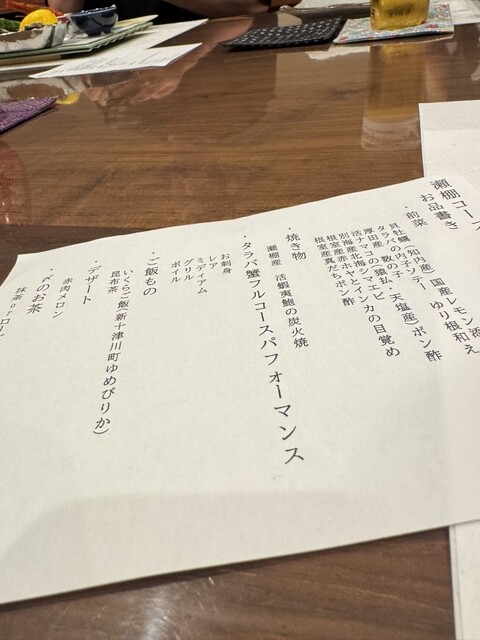 瀬棚コース
お品書き
・前菜
貝牡蠣(知内産) 国産レモン添え
タラバの内子 ゆり根和え
厚田産
活ナマコ 天塩産)ポン酢
インカの目覚め
根室産真だちポン酢
・焼き物
瀬棚産 活蝦夷鮑の炭火焼
・タラバ蟹フルコースパフォーマンス
お刺身
レア
ミディアム
グリル
ボイル
・ご飯もの
いくらご飯(新十津川町ゆめぴりか)
昆布茶
・デザート
赤肉メロン
・〆のお茶
抹茶orロー